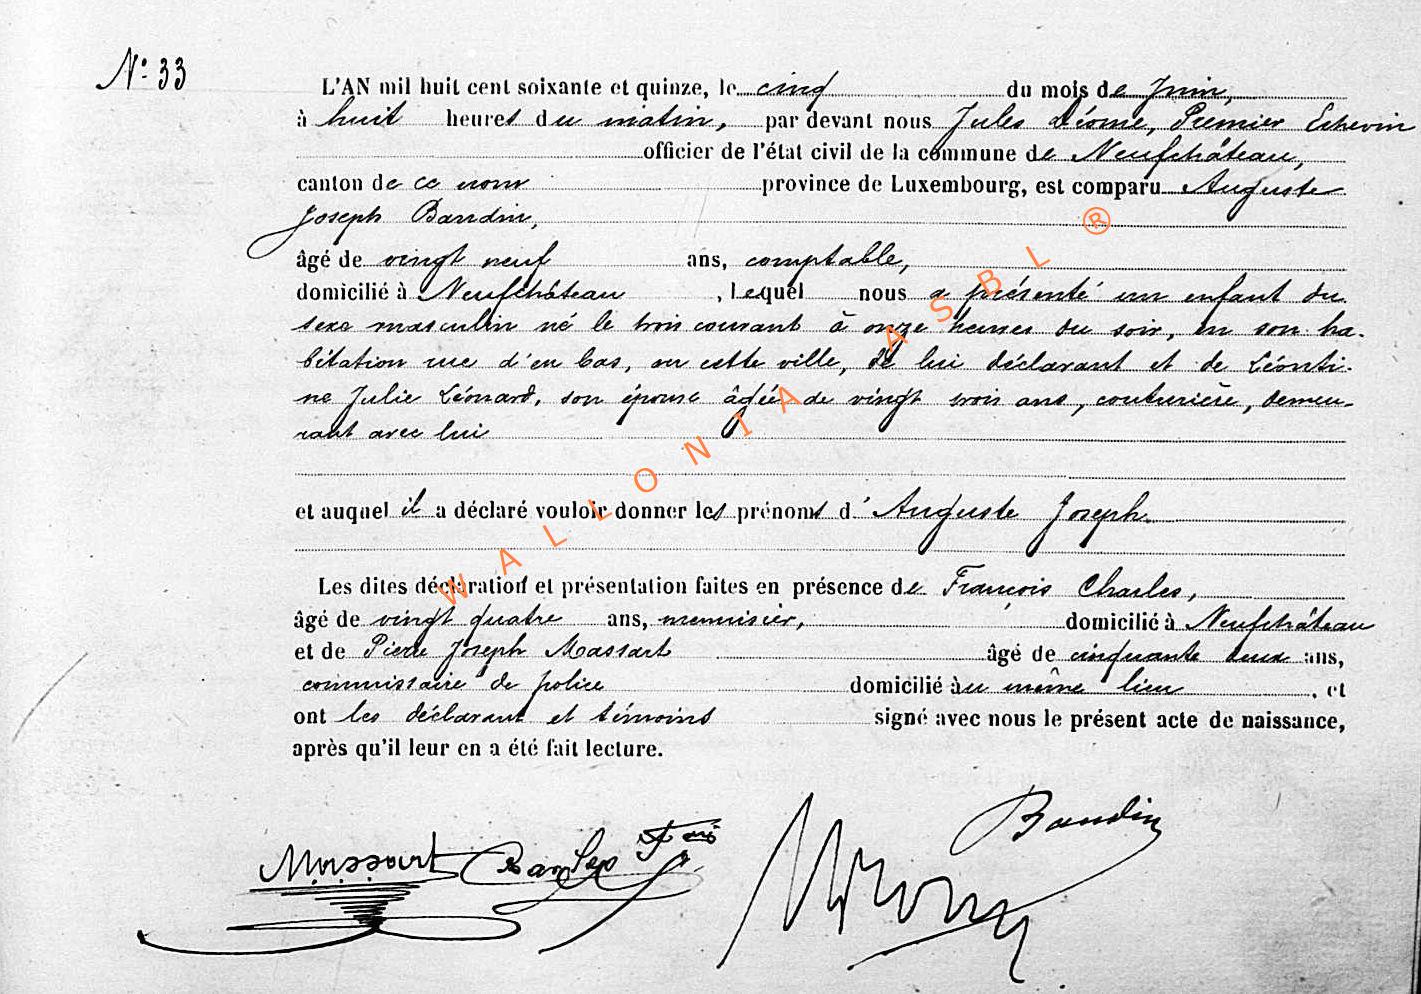 N° 33
L'AN mil huit cent soixante et quinze, le cinq du mois de Juin,
à huit heures du matin, par devant nous Jules Déome, Premier Echevin
officier de l'état civil de la commune de Neufchâteau,
canton de ce nom province de Luxembourg, est comparu Auguste
Joseph Baudin,
âgé de vingt neuf ans, comptable,
domicilié à Neufchâteau, lequel nous a présenté un enfant du
sexe masculin né le trois courant à onze heures du soir, en son ha-
bitation rue d'en bas, en cette ville, de lui déclarant et de Léonti-
ne Julie Léonard, son épouse âgée de vingt trois ans, couturière, demeu-
rant avec lui
et auquel il a déclaré vouloir donner les prénoms d'Auguste Joseph.
Les dites déclaration et présentation faites en présence de François Charles,
âgé de vingt quatre ans, menuisier, domicilié à Neufchâteau
et de Pierre Joseph Massart âgé de cinquante deux ans,
commissaire de police domicilié au même lieu, et
ont les déclarant et témoins signé avec nous le présent acte de naissance,
après qu'il leur en a été fait lecture.
Baudin
Massart
WALLONIA ASBL ®